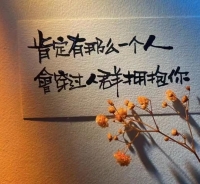 肯定有那么一个人
會穿过人群拥抱你